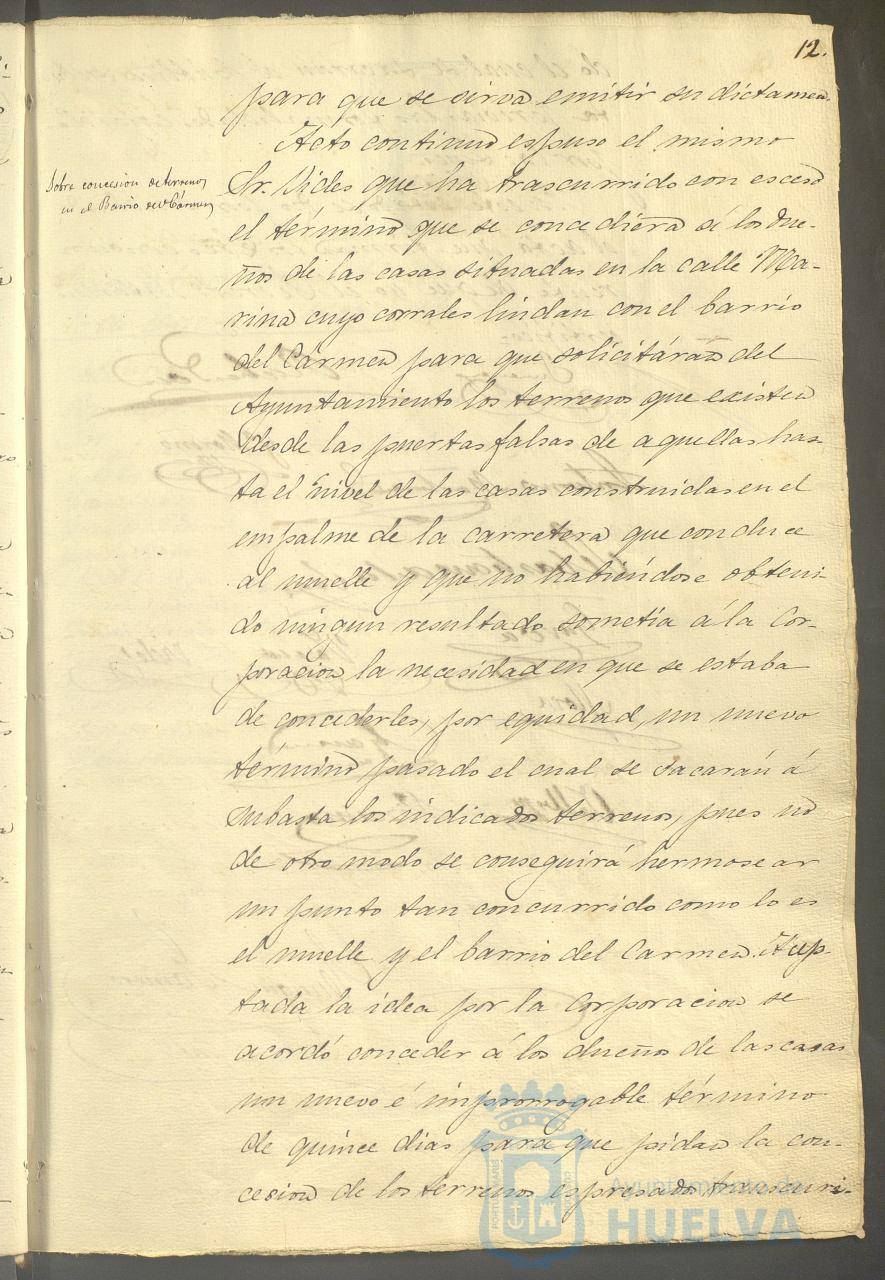 12.
para que se sirva emitir su dictamen.
Acto continuo espuso el mismo
Sobre concesion de terrenos
en el Barrio del Cármen
Sr. Vides que ha trascurrido con esceso
el término que se concediera á los due-
ños de las casas situadas en la calle Ma-
rina cuyo corrales lindan con el barrio
del Cármen para que solicitáran del
Ayuntamiento los terrenos que existen
desde las puertas falsas de aquellas has-
ta el nivel de las casas construidas en el
empalme de la carretera que conduce
al muelle y que no habiéndose obteni-
do ningun resultado sometía á la Cor-
poracion la necesidad en que se estaba
de concederles, por equidad, un nuevo
término pasado el cual se sacarán á
subasta los indicados terrenos, pues no
de otro modo se conseguirá hermosear
un punto tan concurrido como lo es
el muelle y el barrio del Carmen. Acep-
tada la idea por la Corporacion se
acordó conceder á los dueños de las casas
un nuevo é improrrogable término
de quince dias para que pidan la con-
cesion de los terrenos espresados, trascurri-
Ayuntamiento de
HUELVA